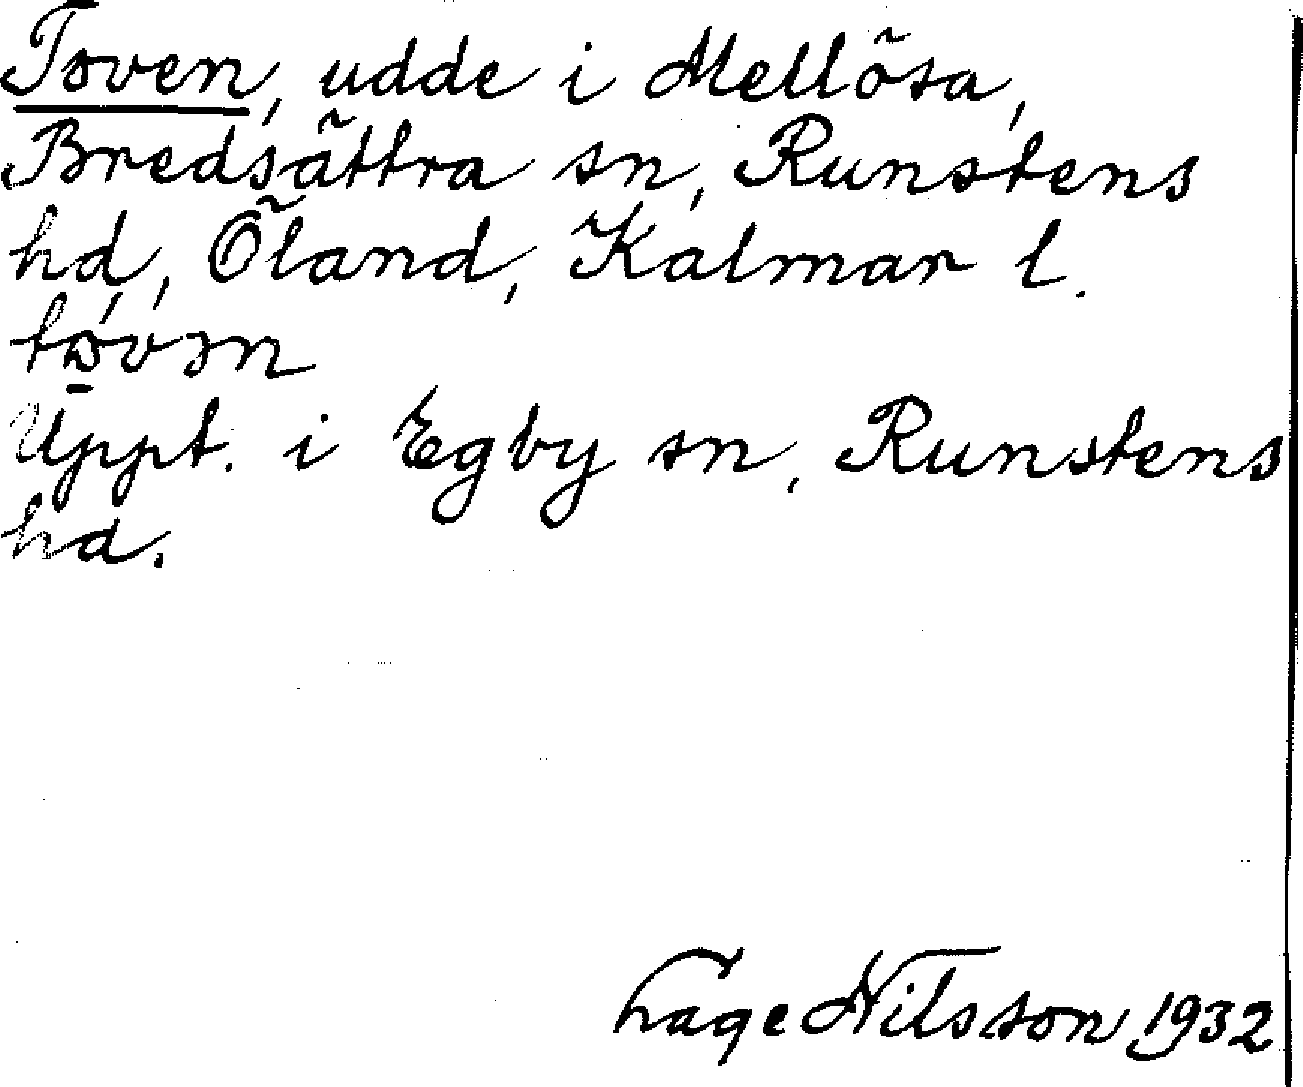 Toven, udde i Mellösa,
Bredsättra sn, Runstens
hd, Öland, Kalmar l.
Uppt. i Egby sn, Runstens
hd.
Lage Nilsson 1932